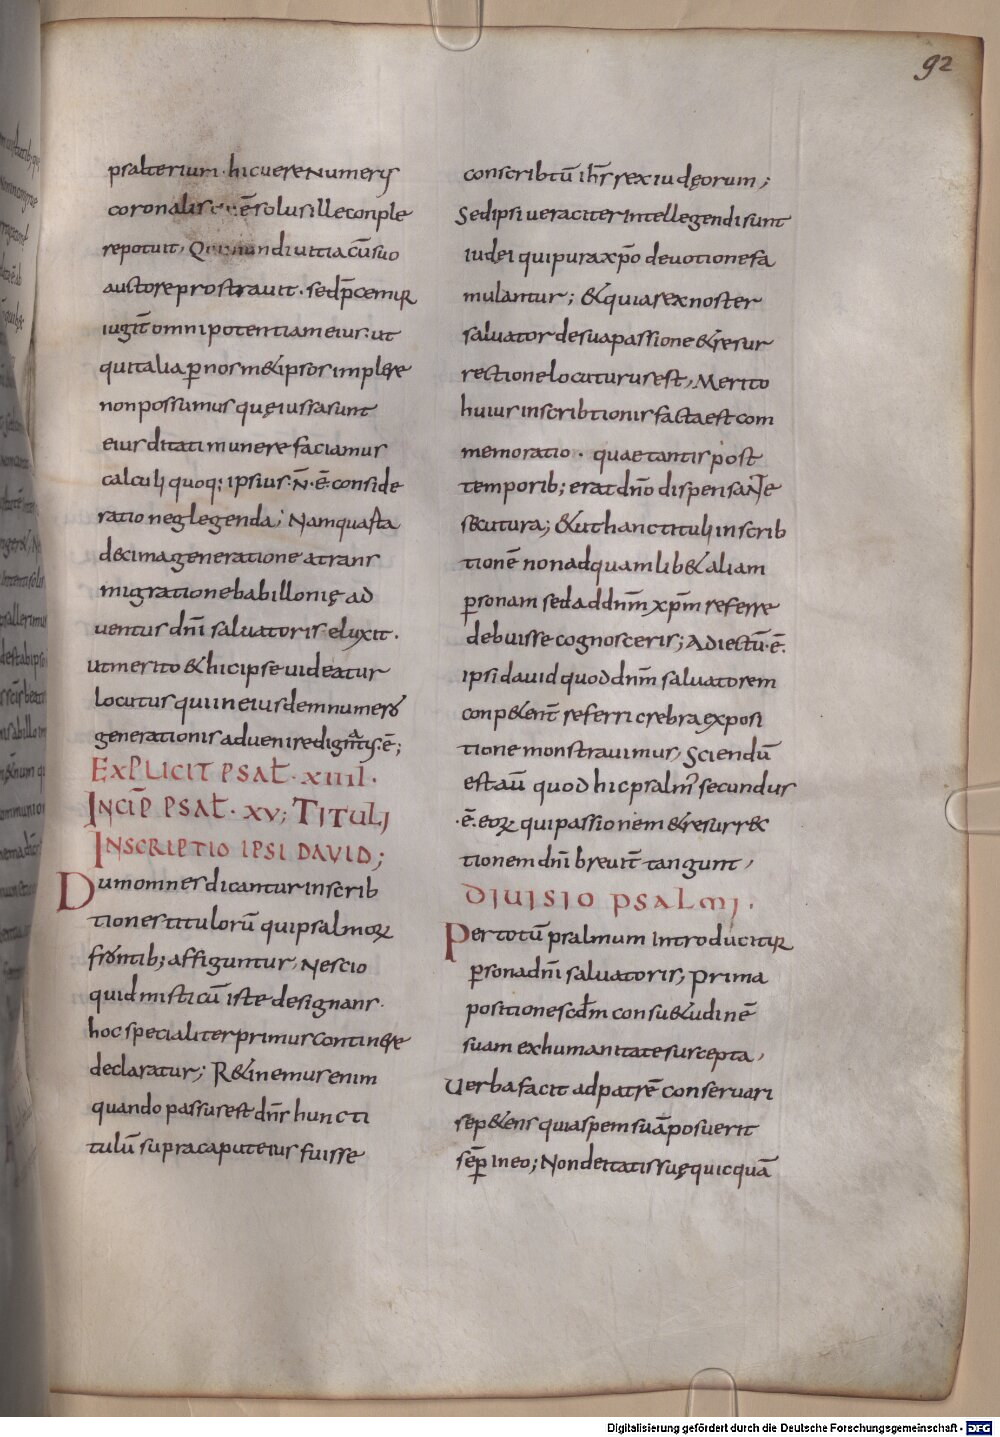 92
psalterium · hic uere numerus
coronalis ē solus ille conple
re potuit, Qui mundi uitia cū suo
auctore prostrauit · sed p̄cemur
iugit̄ omnipotentiam eius· ut
qui talia ꝑ nosm&ipsos implere
non possumus quę iussa sunt
eius ditati munere faciamus
calculi quoq; ipsius· N̄ · ē· conside
ratio neglegenda; Nam quarta
decima generatione a trans
migratione babillonię ad
uentus dn̄i saluatoris eluxit ·
ut merito & hic ipse uideatur
locutus qui in eiusdem numero
generationis aduenire dignatus· ē;
EXPLICIT PSAL̄ · XIIII ·
INCIP̄ PSAL̄ · XV; TITULI
INSCRIPTIO IPSI DAVID;
Dum omnes dicantur inscrib
tiones titulorū qui psalmoꝝ
frontib; affiguntur, Nescio
quid misticū iste designans·
hoc specialiter primus continere
declaratur; R&inemus enim
quando passus est dn̄s hunc ti
tulū supra caput eius fuisse
conscribtū ih̄s rex iudęorum;
Sed ipsi ueraciter intellegendi sunt
iudęi qui pura xp̄o deuotione fa
mulantur; & quia rex noster
saluator de sua passione & resur
rectione locuturus est, Merito
huius inscribtionis facta est com
memoratio · quae tantis post
temporib; erat dn̄o dispensaNTe
secutura; & ut hanc tituli inscrib
tionē non ad quamlib& aliam
ꝑsonam sed ad dn̄m xp̄m referre
debuisse cognosceris; Adiectū· ē·
ipsi dauid quod dn̄m saluatorem
conp&ent̄ referri crebra exposi
tione monstrauimus, Sciendū
est aū quod hic psalm̄ secundus
· ē· eoꝝ qui passionem & resurr&c
tionem dn̄i breuit̄ tangunt,
DIUISIO PSALMI ·
Per totū psalmum introducitur
ꝑsona dn̄i saluatoris, Prima
positione scd̄m consu&udinē
suam ex humanitate suscepta,
Uerba facit ad patrē conseruari
se p&ens quia spem suā posuerit
sēꝑ in eo; Non deitatis suę quicquā
Digitalisierung gefördert durch die Deutsche Forschungsgemeinschaft - DFG